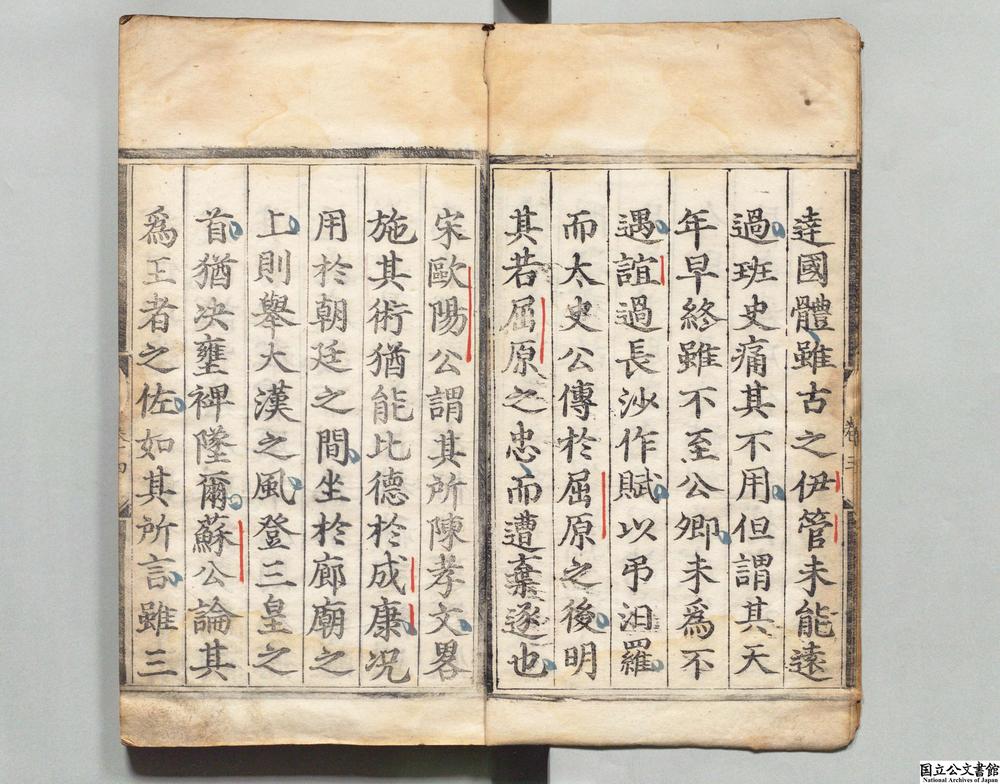 達國體雖古之伊管未能遠
過班史痛其不用但謂其天
年早終雖不至公卿未爲不
遇誼過長沙作賦以弔汨羅
而太史公傳於屈原之後明
其若屈原之忠而遭棄逐也
宋歐陽公謂其所陳孝文畧
施其術猶能比德於成康况
用於朝廷之間坐於廊廟之
上則舉大漢之風登三皇之
首猶决壅裨墜爾蘇公論其
爲王者之佐如其所言雖三
卷三
国立公文書館
National Archives of Japan